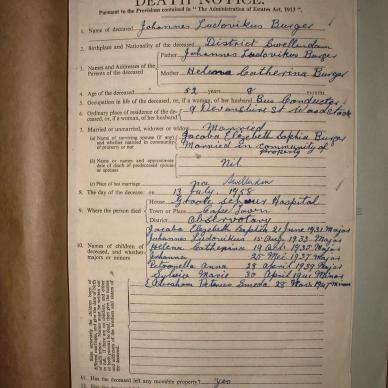 DEATH NOTICE.
Pursuant to the Provisions contained in "The Administration of Estates Act, 1913".
1. Name of deceased Johannes Ludovikus Burger
2. Birthplace and Nationality of the deceased District Swellendam
3. Names and Addresses of the Parents of the deceased
Father Johannes Ludovikus Burger
Mother Helena Catherina Burger
4. Age of the deceased 52 years 8 months
5. Occupation in life of the deceased, or, if a woman, of her husband Bus Conductor
6. Ordinary place of residence of the deceased, or, if a woman, of her husband 9 Devonshire St Woodstock
7. Married or unmarried, widower or widow Married
(a) Name of surviving spouse (if any) and whether married in community of property or not Jacoba Elizabeth Sophia Burger
Married in community of property
(b) Name or names and approximate date of death of predeceased spouse or spouses Nil
(c) Place of last marriage Swellendam
8. The day of the decease: on 13 July 1958
9. Where the person died
House Groote Schuur Hospital
Town or Place Cape Town
District Observatory
10. Names of children of deceased, and whether majors or minors
Jacoba Elizabeth Sophia 21 June 1931 Major
Johannes Ludovikus 15 Aug 1933 Major
Helena Catherina 12 Oct 1935 Major
Johanna 25 Mei 1937 Major
Petronella Anna 28 April 1939 Major
Marie 30 April Minor
Abraham Petrus 28 Mar 1947 Minor
11. Has the deceased left any movable property? yes